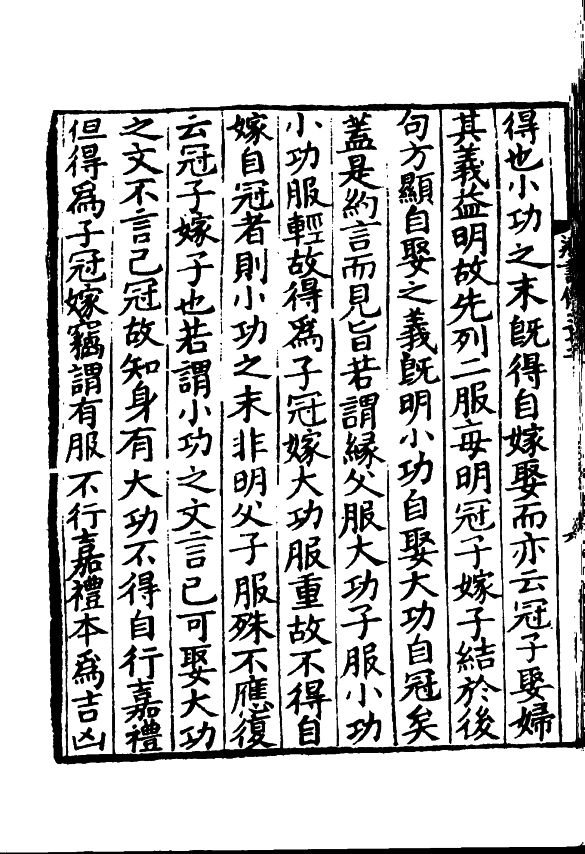 得也小功之末既得自嫁娶而亦云冠子娶婦
其義益明故先列二服每明冠子嫁子結於後
句方顯自娶之義既明小功自娶大功自冠矣
蓋是約言而見旨若謂緣父服大功子服小功
小功服輕故得爲子冠嫁大功服重故不得自
嫁自冠者則小功之末非明父子服殊不應復
云冠子嫁子也若謂小功之文言己可娶大功
之文不言己冠故知身有大功不得自行嘉禮
但得爲子冠嫁竊謂有服不行嘉禮本爲吉凶